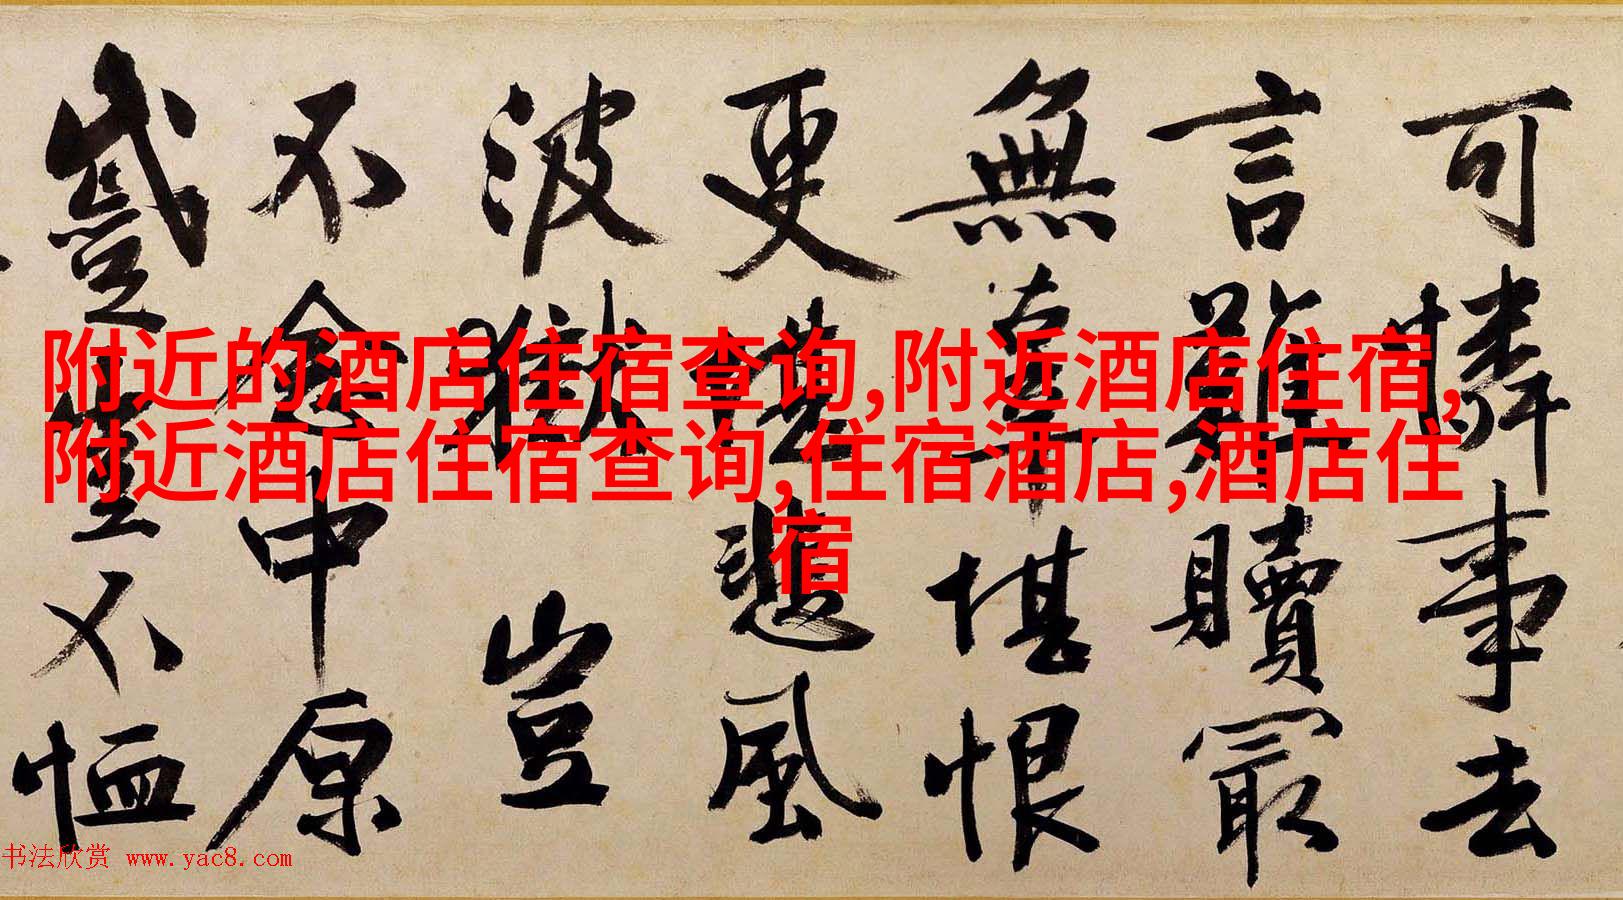 附近的酒店住宿查询,附近酒店住宿,
附近酒店住宿查询,住宿酒店,酒店住
宿
可憐事去
言難贖冣
無辜堪恨
更堪悲風
波獄豈
不念中原
蹙豈不恤
书法欣赏 www.yac8.com